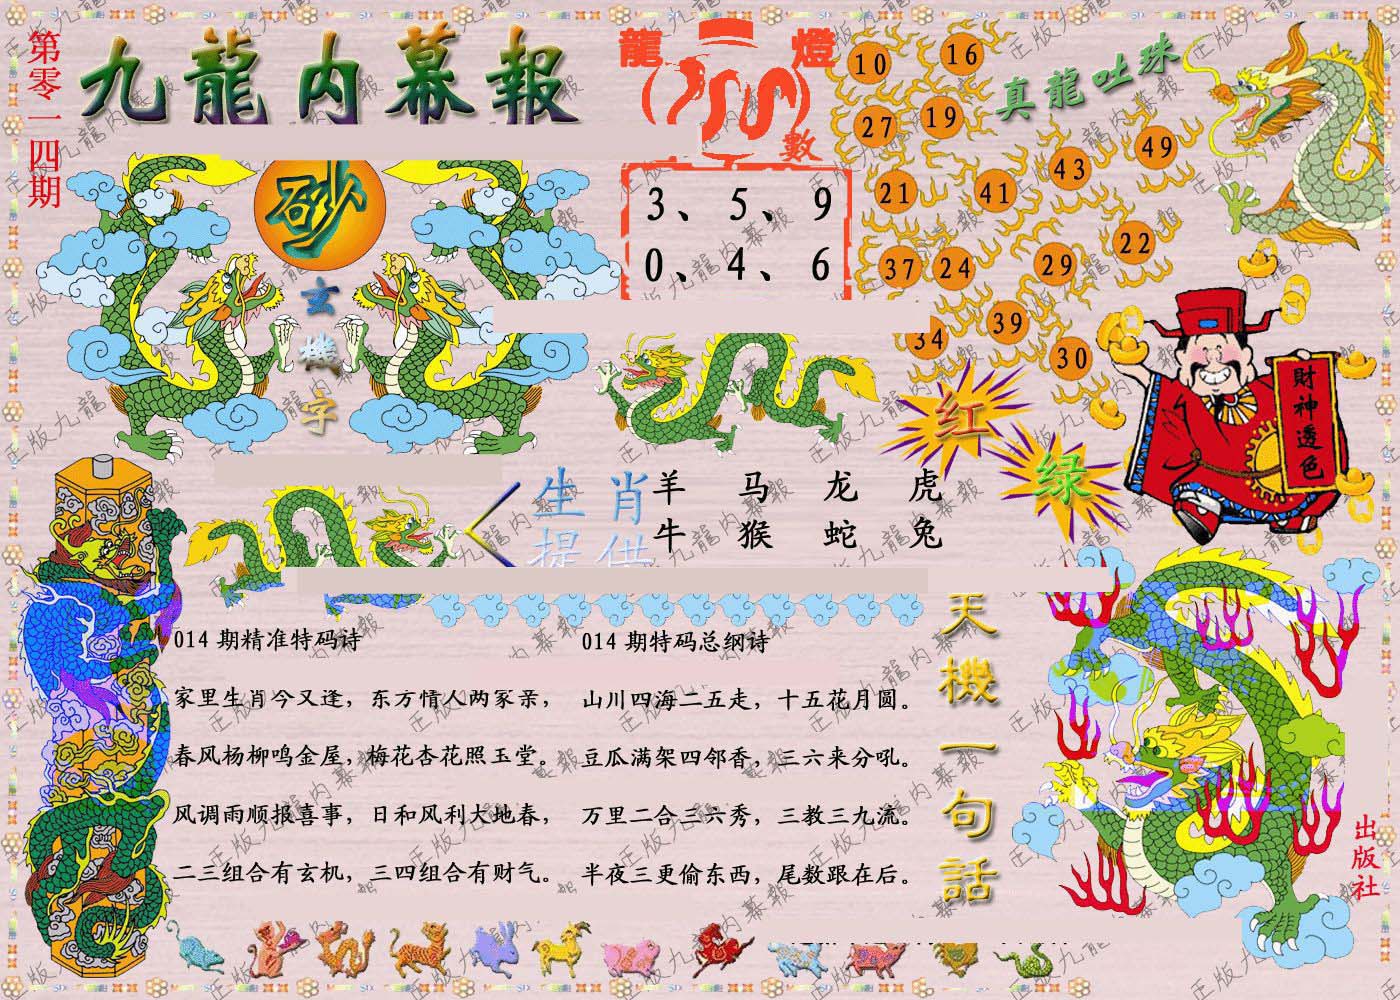 第零一四期
九龍内幕報
龍燈
數
10 16
27 19
真龍吐珠
43 49
21 41
37 24 29 22
34 39 30
3、5、9
0、4、6
砂
玄
機
字
财神透色
红
绿
生肖
提供
羊 马 龙 虎
牛 猴 蛇 兔
014 期精准特码诗
家里生肖今又逢，东方情人两家亲，
春风杨柳鸣金屋，梅花杏花照玉堂。
风调雨顺报喜事，日和风利大地春，
二三组合有玄机，三四组合有财气。
014 期特码总纲诗
山川四海二五走，十五花月圆。
豆瓜满架四邻香，三六来分吼。
万里二合三六秀，三教三九流。
半夜三更偷东西，尾数跟在后。
天機一句話
出版社
正版九龍内幕報